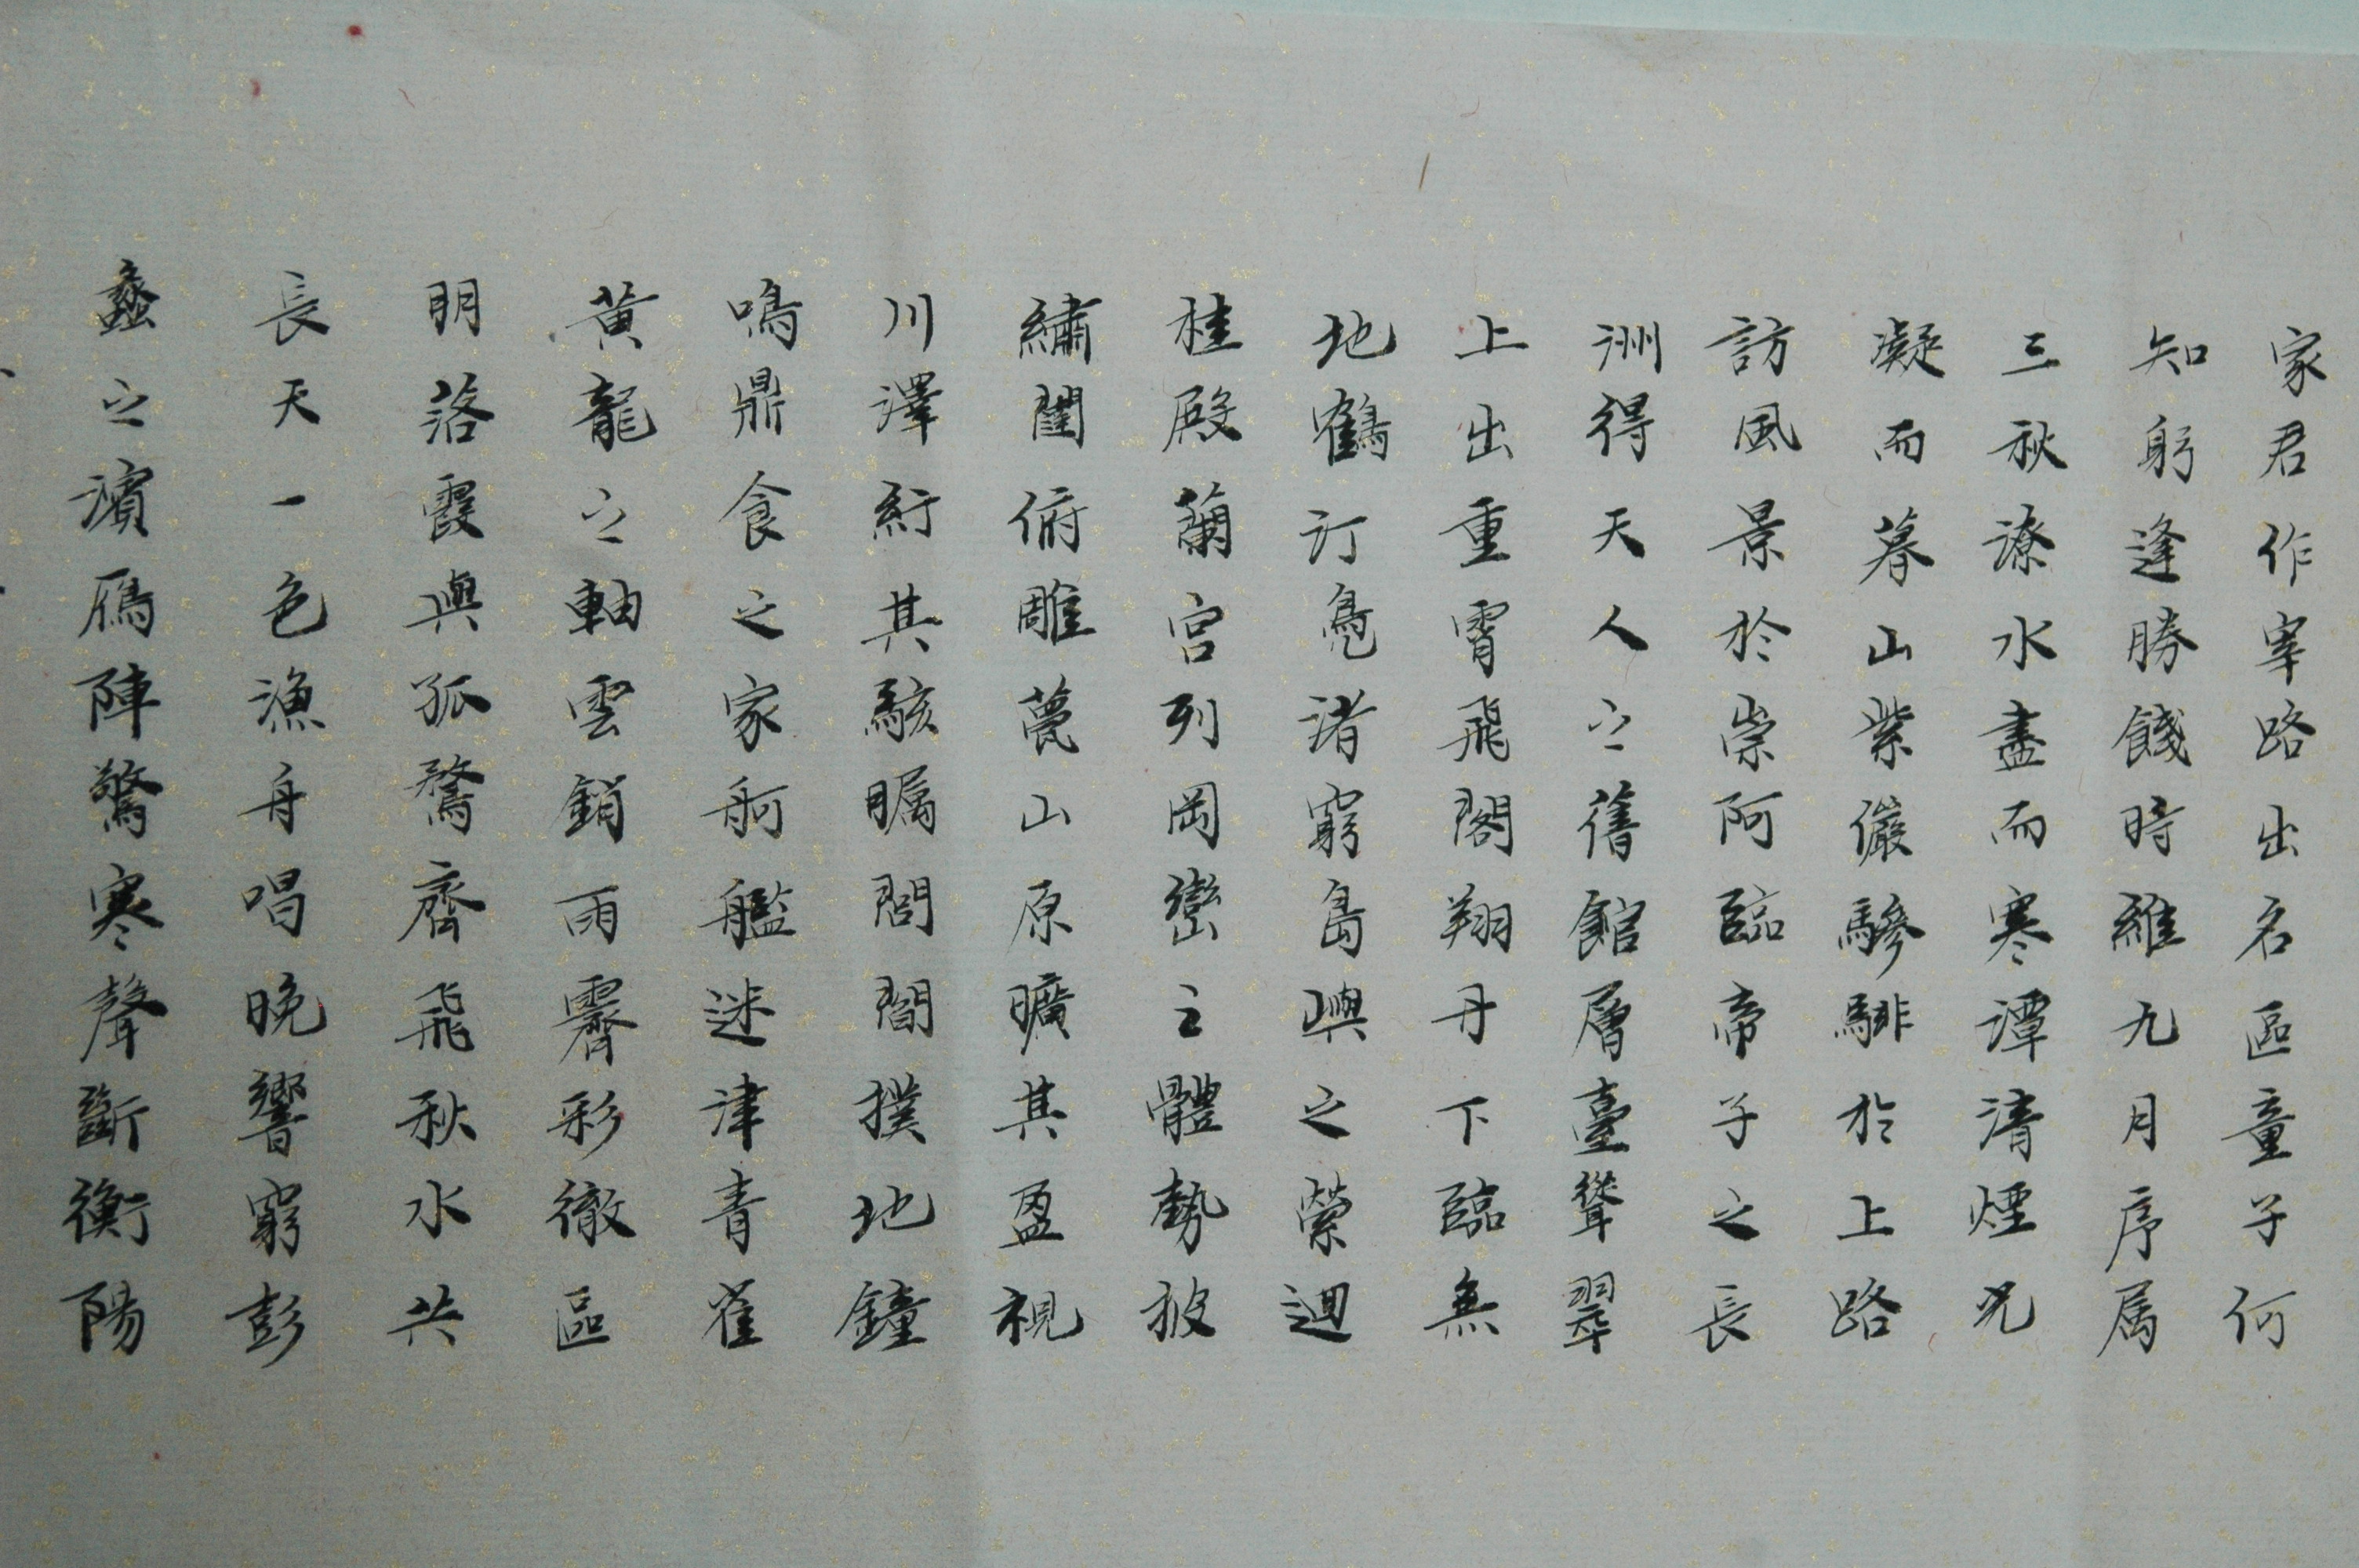 家君作宰路出名區童子何
知躬逢勝餞時維九月序属
三秋潦水盡而寒潭清煙光
凝而暮山紫儼驂騑於上路
訪風景於崇阿臨帝子之長
洲得天人之舊館層臺聳翠
上出重霄飛閣翔丹下臨無
地鶴汀鳧渚窮島嶼之縈迴
桂殿蘭宮列岡巒之體勢披
繡闥俯雕甍山原曠其盈視
川澤紆其駭矚閭閻撲地鐘
鳴鼎食之家舸艦迷津青雀
黃龍之軸雲銷雨霽彩徹區
明落霞與孤鶩齊飛秋水共
長天一色漁舟唱晚響窮彭
蠡之濱雁陣驚寒聲斷衡陽